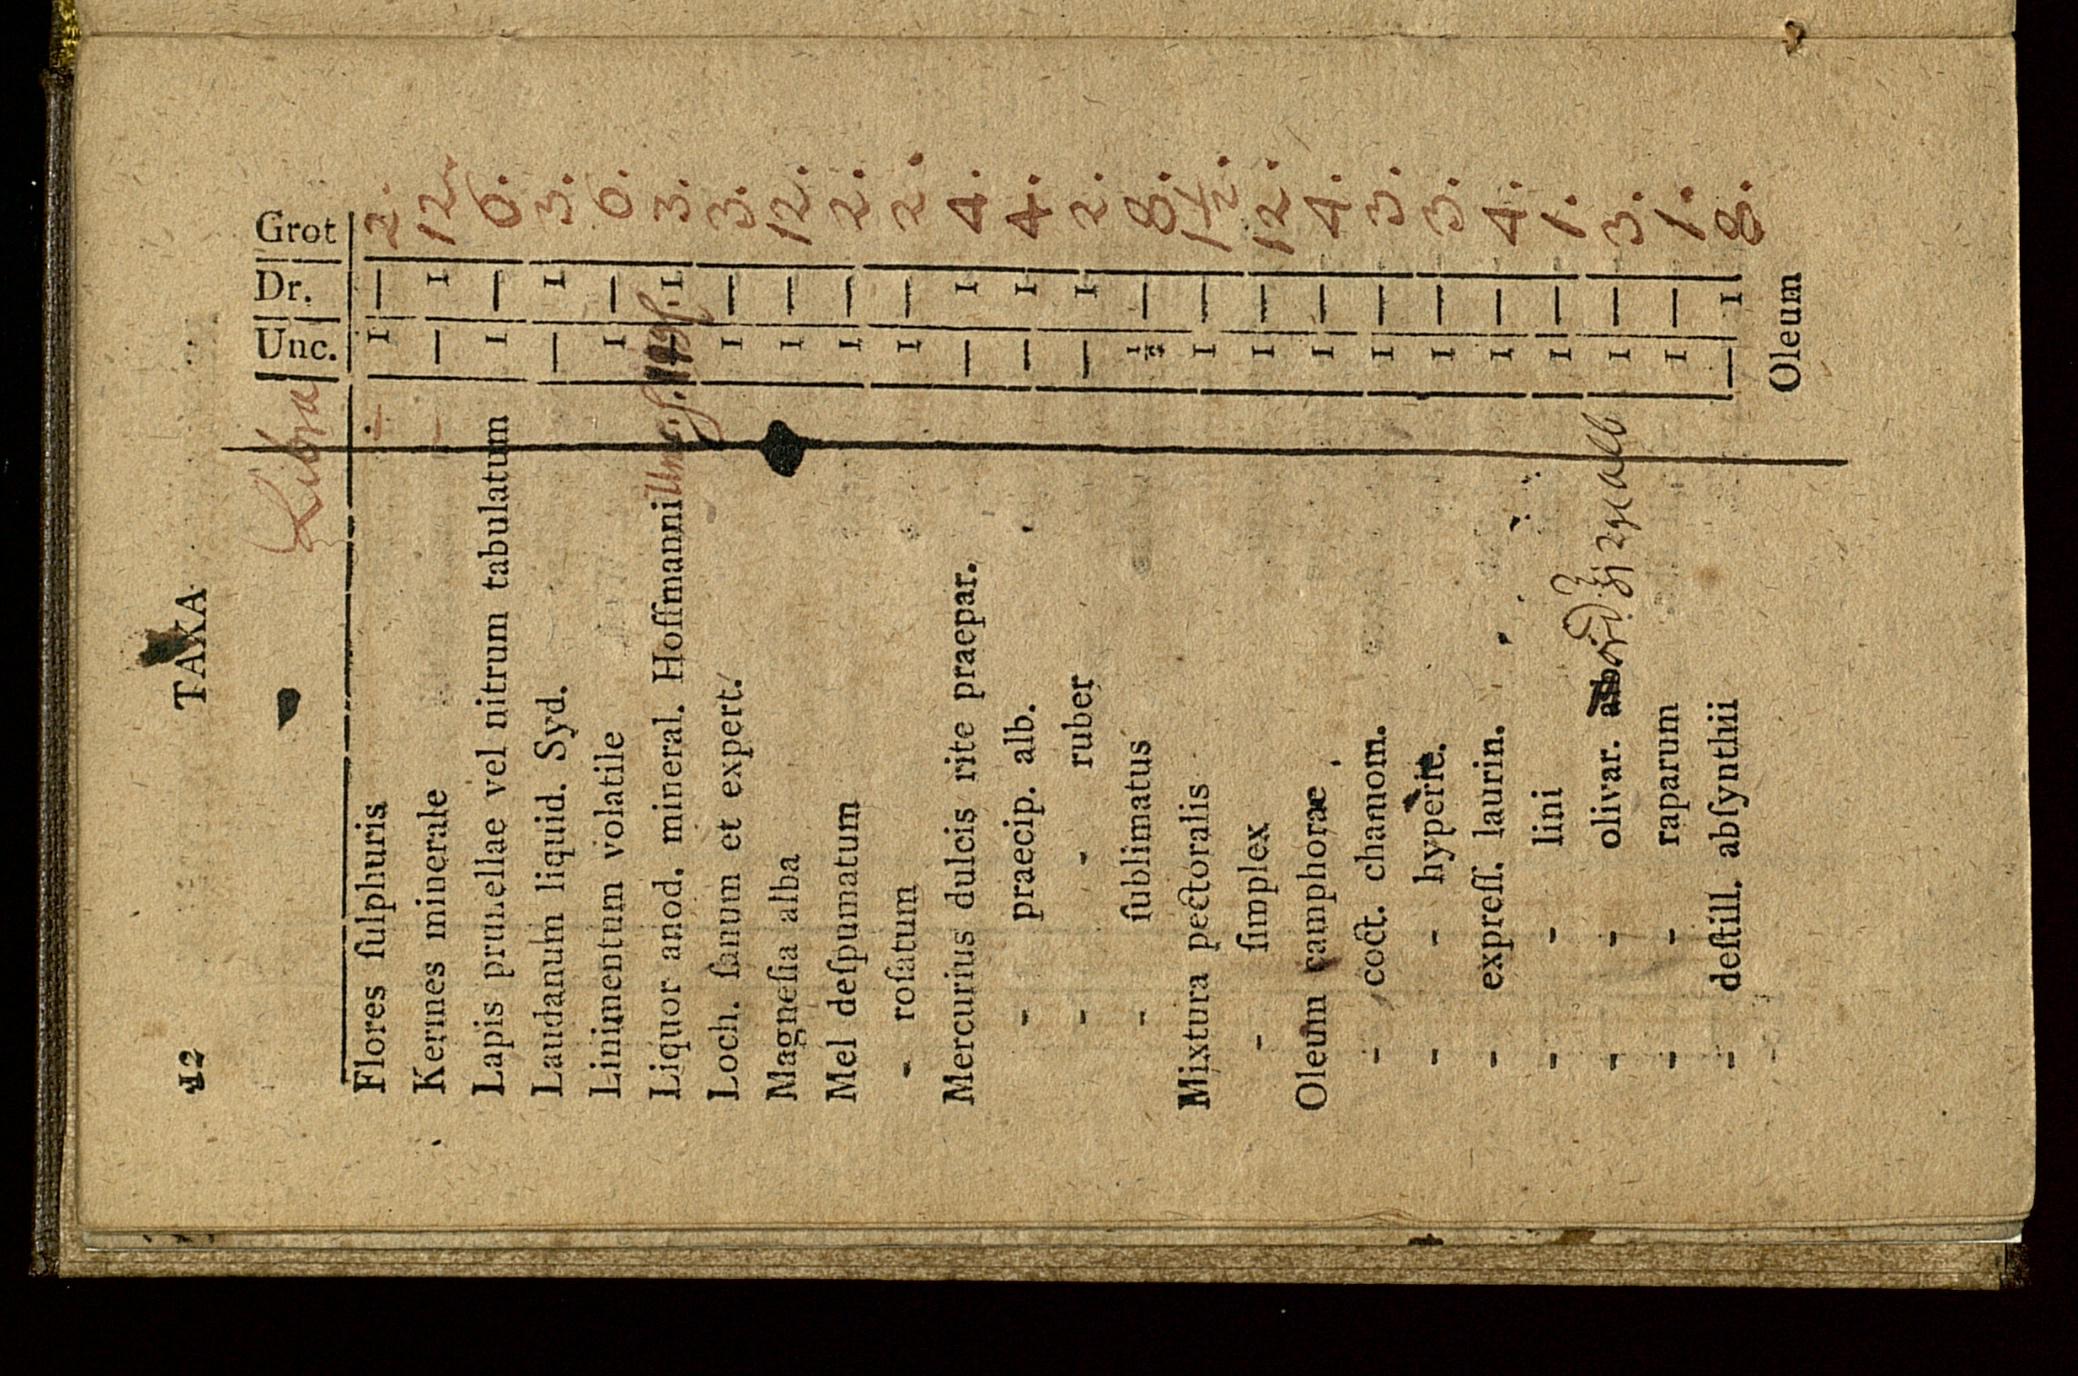 12 TAXA
Libra Unc. Dr. Grot
Flores ſulphuris 1 — 2.
Kermes minerale — 1 12
Lapis prunellae vel nitrum tabulatum 1 — 6.
Laudanum liquid. Syd. — 1 3.
Linimentum volatile 1 — 6.
Liquor anod. mineral. Hoffmanni 1 3.
Loch. ſanum et expert. 1 — 3.
Magneſia alba 1 — 12.
Mel deſpumatum 1 — 2.
- roſatum 1 — 2.
Mercurius dulcis rite praepar. — 1 4.
- praecip. alb. — 1 4.
- - ruber — 1 2.
- ſublimatus — 8.
Mixtura pectoralis 1 —
- ſimplex 1 — 12.
Oleum camphorae 1 — 4.
- coct. chamom. 1 — 3.
- - hyperic. 1 — 3.
- expreſſ. laurin. 1 — 4.
- - lini 1 — 1.
- - olivar. alb 1 — 3.
- - raparum 1 — 1.
- deſtill. abſynthii — 1 8.
Oleum